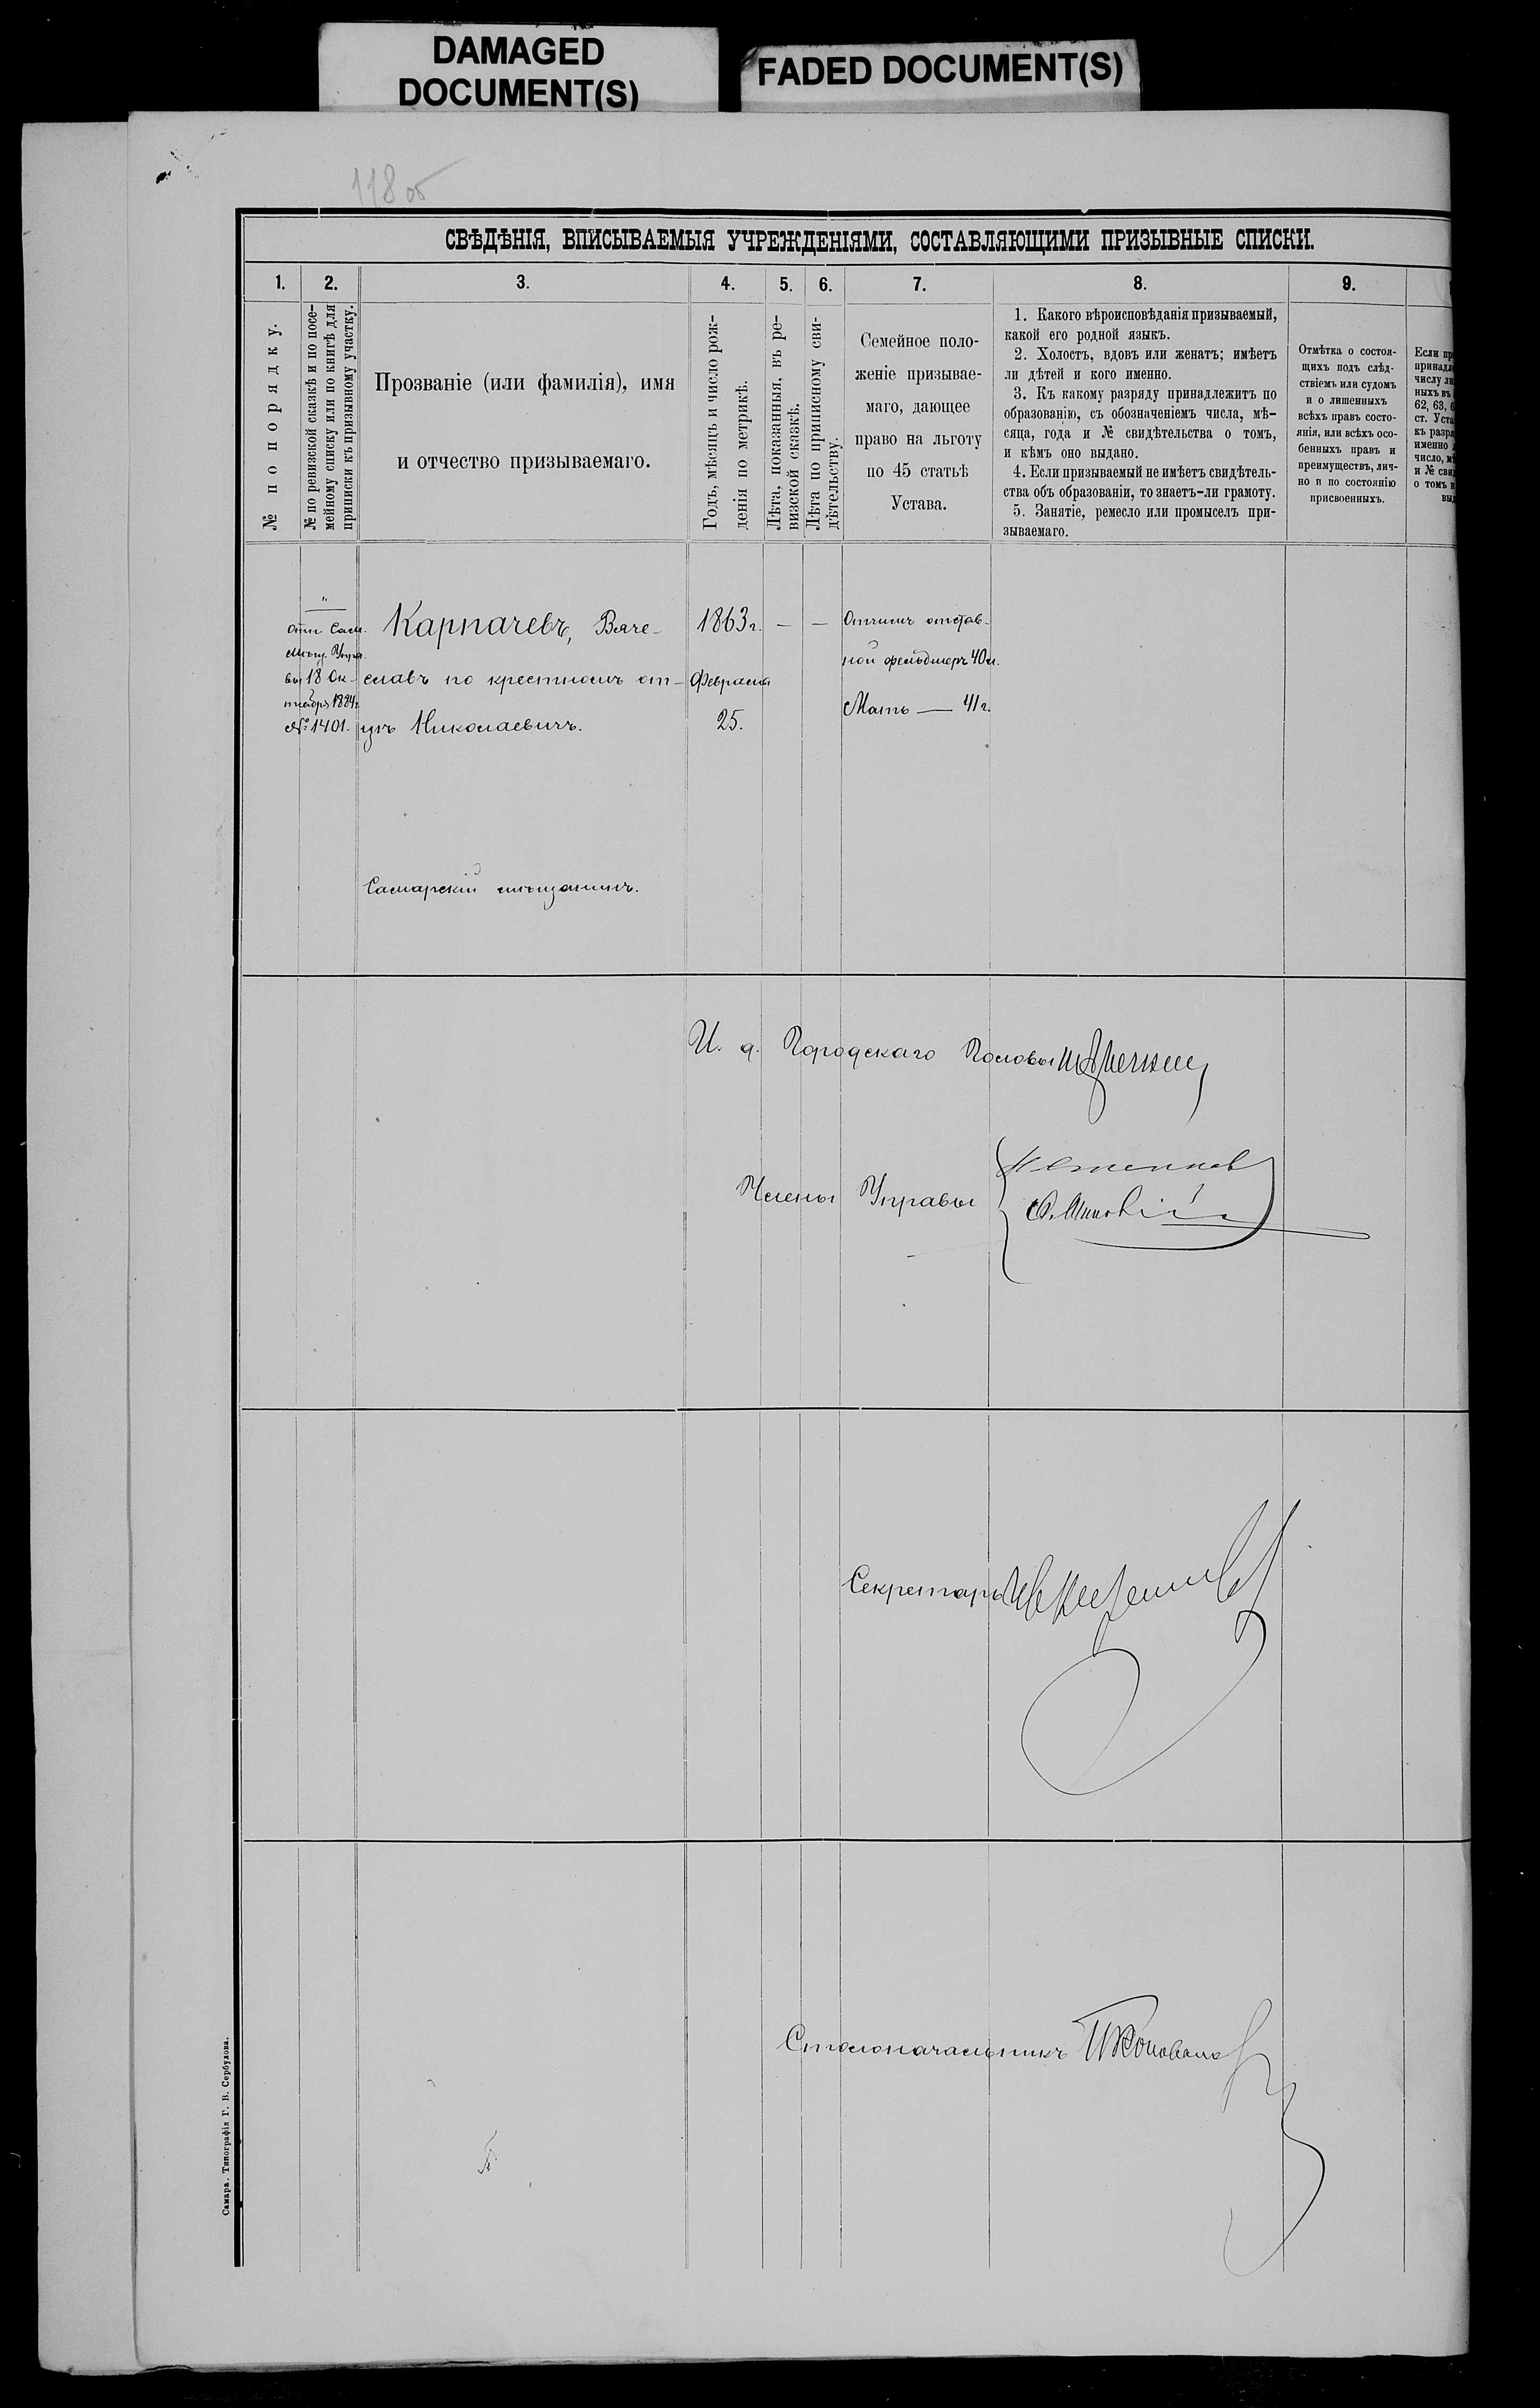 DAMAGED
DOCUMENT(S)
FADED DOCUMENT(S)
118 об
СВѢДѢНІЯ, ВПИСЫВАЕМЫЯ УЧРЕЖДЕНІЯМИ, СОСТАВЛЯЮЩИМИ ПРИЗЫВНЫЕ СПИСКИ.
1. 2. 3. 4. 5. 6. 7. 8. 9.
№ по порядку.
№ по ревизской сказкѣ и по посе-
мейному списку или по книгѣ для
приписки къ призывному участку.
Прозваніе (или фамилія), имя
и отчество призываемаго.
Годъ, мѣсяцъ и число рож-
денія по метрикѣ.
Лѣта, показанныя, въ ре-
визской сказкѣ.
Лѣта по приписному сви-
дѣтельству.
Семейное поло-
женіе призывае-
маго, дающее
право на льготу
по 45 статьѣ
Устава.
1. Какого вѣроисповѣданія призываемый,
какой его родной языкъ.
2. Холостъ, вдовъ или женатъ; имѣетъ
ли дѣтей и кого именно.
3. Къ какому разряду принадлежитъ по
образованію, съ обозначеніемъ числа, мѣ-
сяца, года и № свидѣтельства о томъ,
и кѣмъ оно выдано.
4. Если призываемый не имѣетъ свидѣтель-
ства объ образованіи, то знаетъ-ли грамоту.
5. Занятіе, ремесло или промыселъ при-
зываемаго.
Отмѣтка о состоя-
щихъ подъ слѣд-
ствіемъ или судомъ
и о лишенныхъ
всѣхъ правъ состо-
янія, или всѣхъ осо-
бенныхъ правъ и
преимуществъ, лич-
но и по состоянію
присвоенныхъ.
Если пр
принадл
числу ли
ныхъ въ
62, 63, 6
ст. Уста
къ разря
именно
число, мѣ
и № сви
о томъ и
выд
"
отн. Сам.
Мѣщ. Упра-
вы 18 Ок-
тября 1884г.
№ 1401.
Карпачевъ, Вяче-
славъ по крестномъ от-
цѣ Николаевичъ.
Самарскій мѣщанинъ.
1863г.
Февраля
25.
— —
Отчимъ отстав-
ной фельдшеръ 40 л.
Мать — 41 г.
И. д. Городскаго Головы
Члены Управы
Секретарь
Столоначальникъ П Коновалов
Самара. Типографія Г. В. Сербулова.